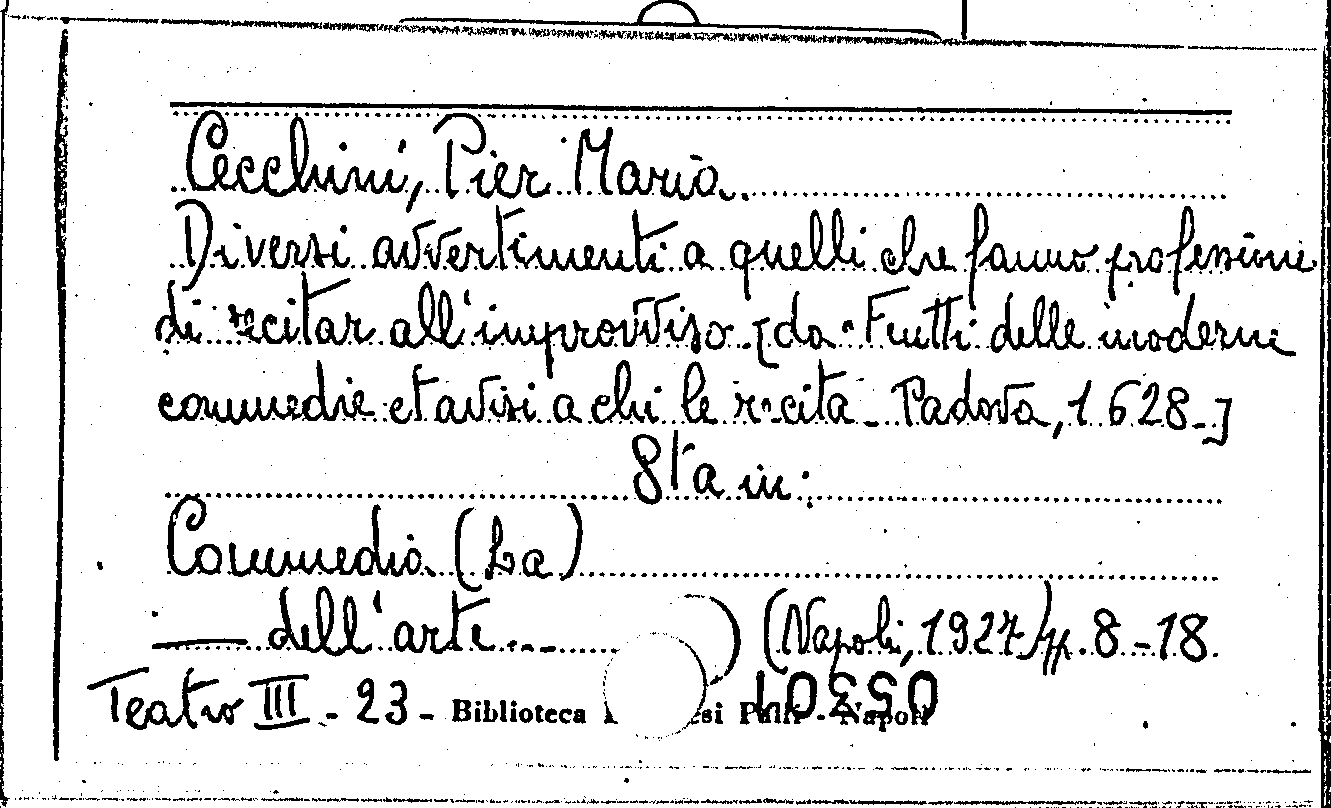 Cecchini, Pier Maria.
Diversi avvertimenti a quelli che fanno professione
di recitar all'improvviso [da "Frutti delle moderne
commedie et avisi a chi le recita - Padova, 1628-]
Sta in:
Commedia (La)
— dell'arte... ) (Napoli, 1927) pp. 8-18.
Teatro III - 23 - Biblioteca si Palli - Napoli
05301